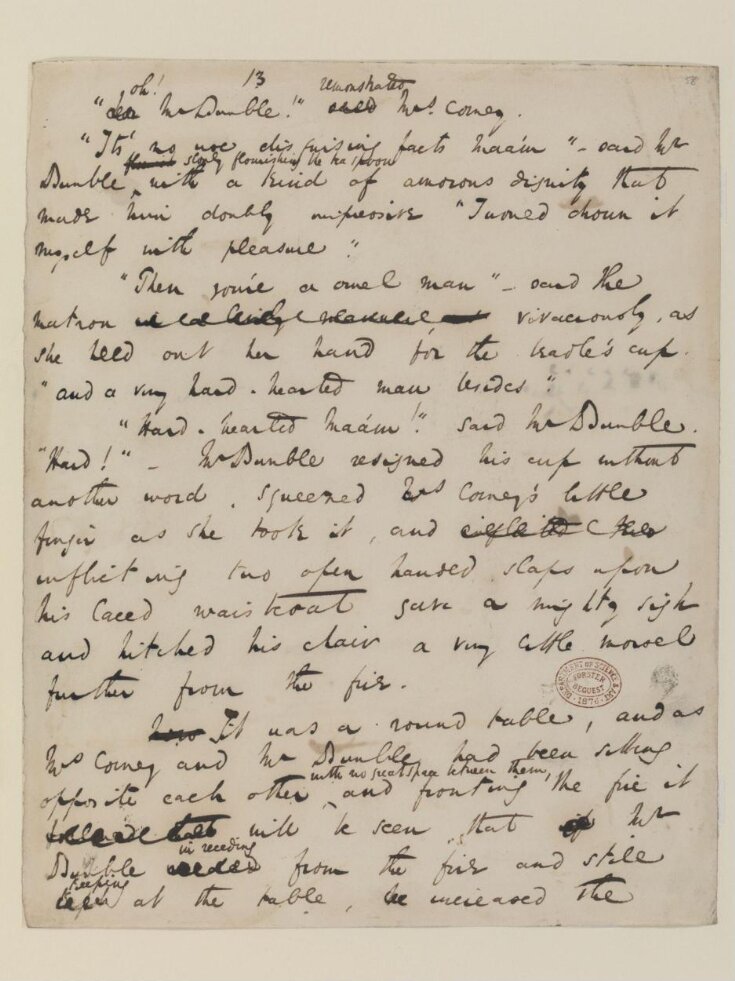 13
58
oh! remonstrated
" Mr Bumble!" Mrs Corney.
"It's no use disguising facts Maa'm" – said Mr
slowly flourishing the tea spoon
Bumble with a kind of amorous dignity that
made him doubly impressive "I would drown it
myself with pleasure."
"Then you're a cruel man" – said the
matron vivaciously, as
she held out her hand for the beadle's cup.
"and a very hard-hearted man besides"
"Hard-hearted Maa'm!" said Mr Bumble.
"Hard!" – Mr Bumble resigned his cup without
another word, squeezed Mrs Corney's little
finger as she took it, and
inflicting two open handed slaps upon
his laced waistcoat gave a mighty sigh
and hitched his chair a very little morsel
further from the fire.
DEPARTMENT OF SCIENCE & ART
FORSTER
BEQUEST
1876
It was a round table, and as
Mrs Corney and Mr Bumble had been sitting
with no great space between them,
opposite each other, and fronting the fire it
will be seen that Mr
in receding
Bumble from the fire and still
keeping
at the table, he increased the